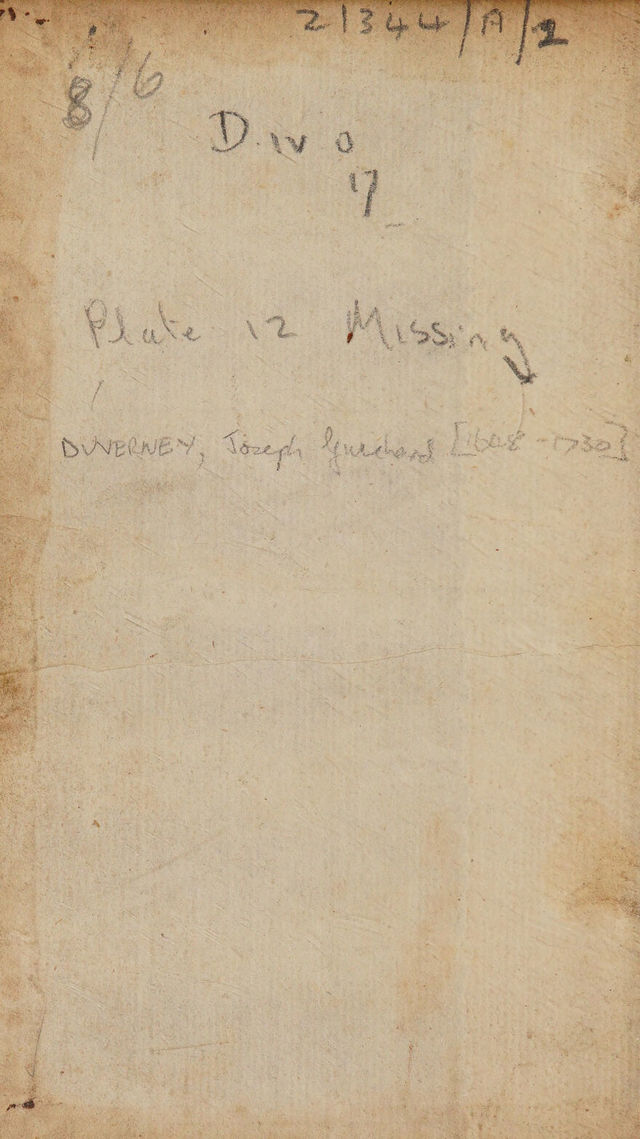 21344/A/2
8/6
D.IV O
17
Plate 12 Missing
DUVERNEY, Joseph Guichard [1648-1730]